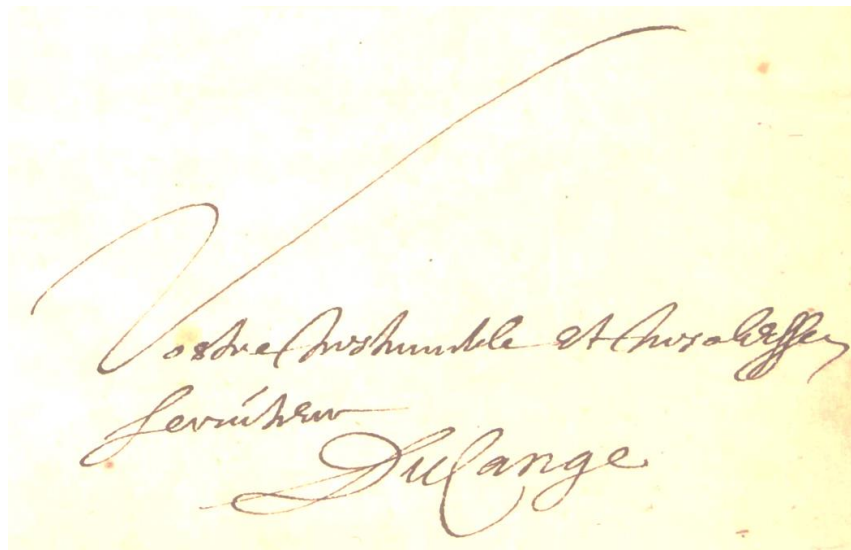 Vostre treshumble et tresobeissant
serviteur
DuCange